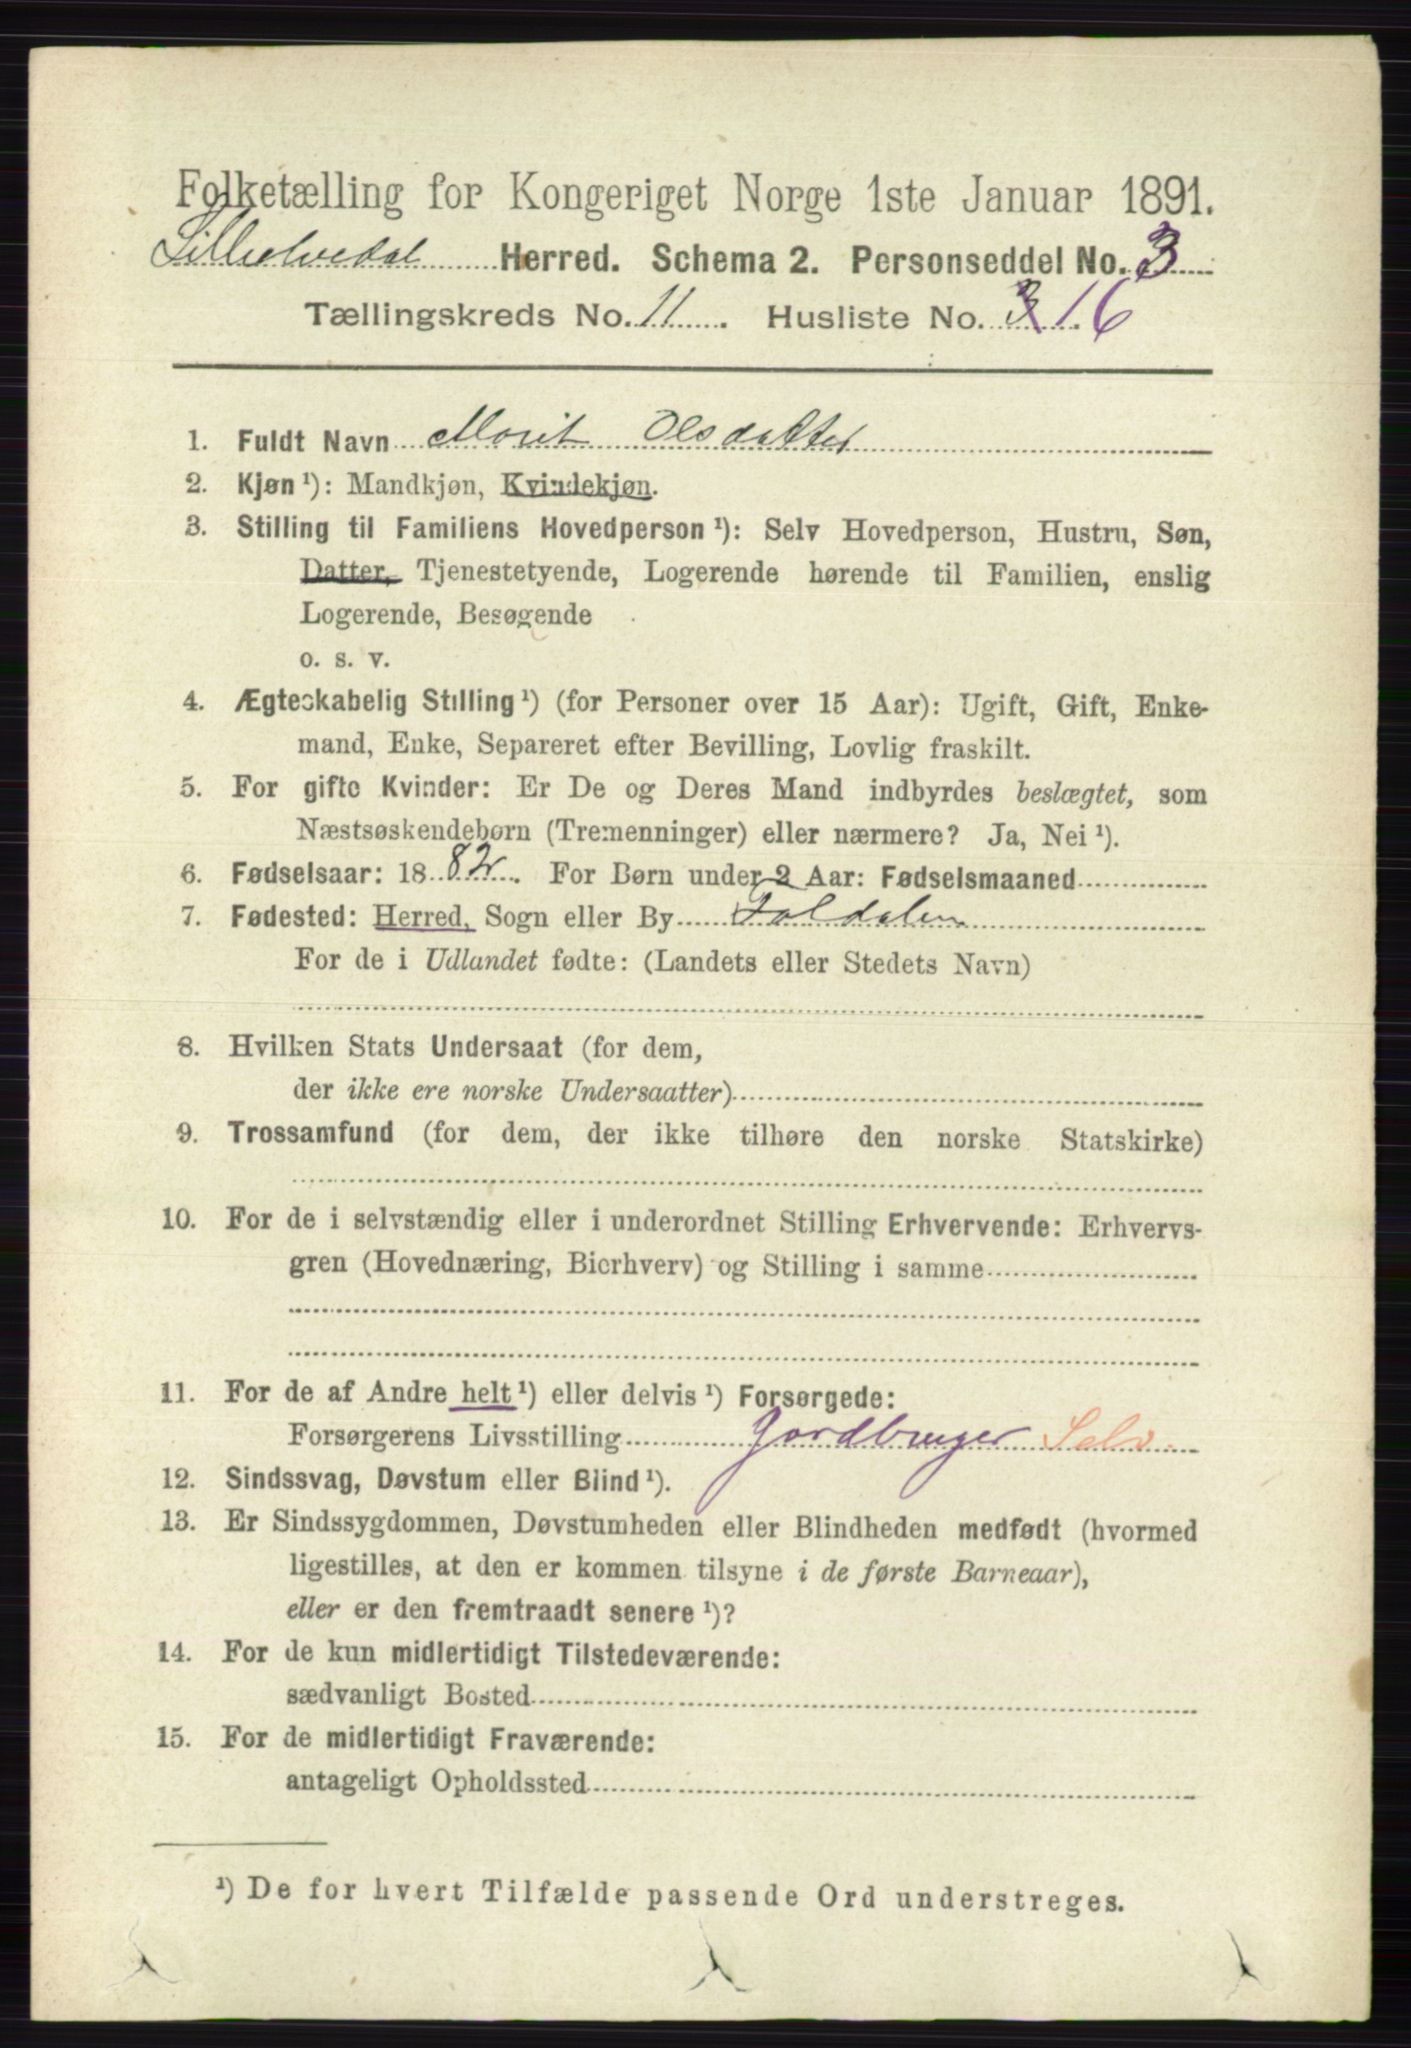 Folketælling for Kongeriget Norge 1ste Januar 1891.
Lilleelvedal Herred. Schema 2. Personseddel No. 3
Tællingskreds No. 11. Husliste No. 3 16
1. Fuldt Navn Marit Olsdatter
2. Kjøn ¹): Mandkjøn, Kvindekjøn.
3. Stilling til Familiens Hovedperson ¹): Selv Hovedperson, Hustru, Søn,
Datter, Tjenestetyende, Logerende hørende til Familien, enslig
Logerende, Besøgende
o. s. v.
4. Ægteskabelig Stilling ¹) (for Personer over 15 Aar): Ugift, Gift, Enke-
mand, Enke, Separeret efter Bevilling, Lovlig fraskilt.
5. For gifte Kvinder: Er De og Deres Mand indbyrdes beslægtet, som
Næstsøskendebørn (Tremenninger) eller nærmere? Ja, Nei ¹).
6. Fødselsaar: 1882. For Børn under 2 Aar: Fødselsmaaned
7. Fødested: Herred, Sogn eller By Foldalen
For de i Udlandet fødte: (Landets eller Stedets Navn)
8. Hvilken Stats Undersaat (for dem,
der ikke ere norske Undersaatter)
9. Trossamfund (for dem, der ikke tilhøre den norske Statskirke)
10. For de i selvstændig eller i underordnet Stilling Erhvervende: Erhvervs-
gren (Hovednæring, Bierhverv) og Stilling i samme
11. For de af Andre helt ¹) eller delvis ¹) Forsørgede:
Forsørgerens Livsstilling Jordbruger Selv.
12. Sindssvag, Døvstum eller Blind ¹).
13. Er Sindssygdommen, Døvstumheden eller Blindheden medfødt (hvormed
ligestilles, at den er kommen tilsyne i de første Barneaar),
eller er den fremtraadt senere ¹)?
14. For de kun midlertidigt Tilstedeværende:
sædvanligt Bosted
15. For de midlertidigt Fraværende:
antageligt Opholdssted
¹) De for hvert Tilfælde passende Ord understreges.